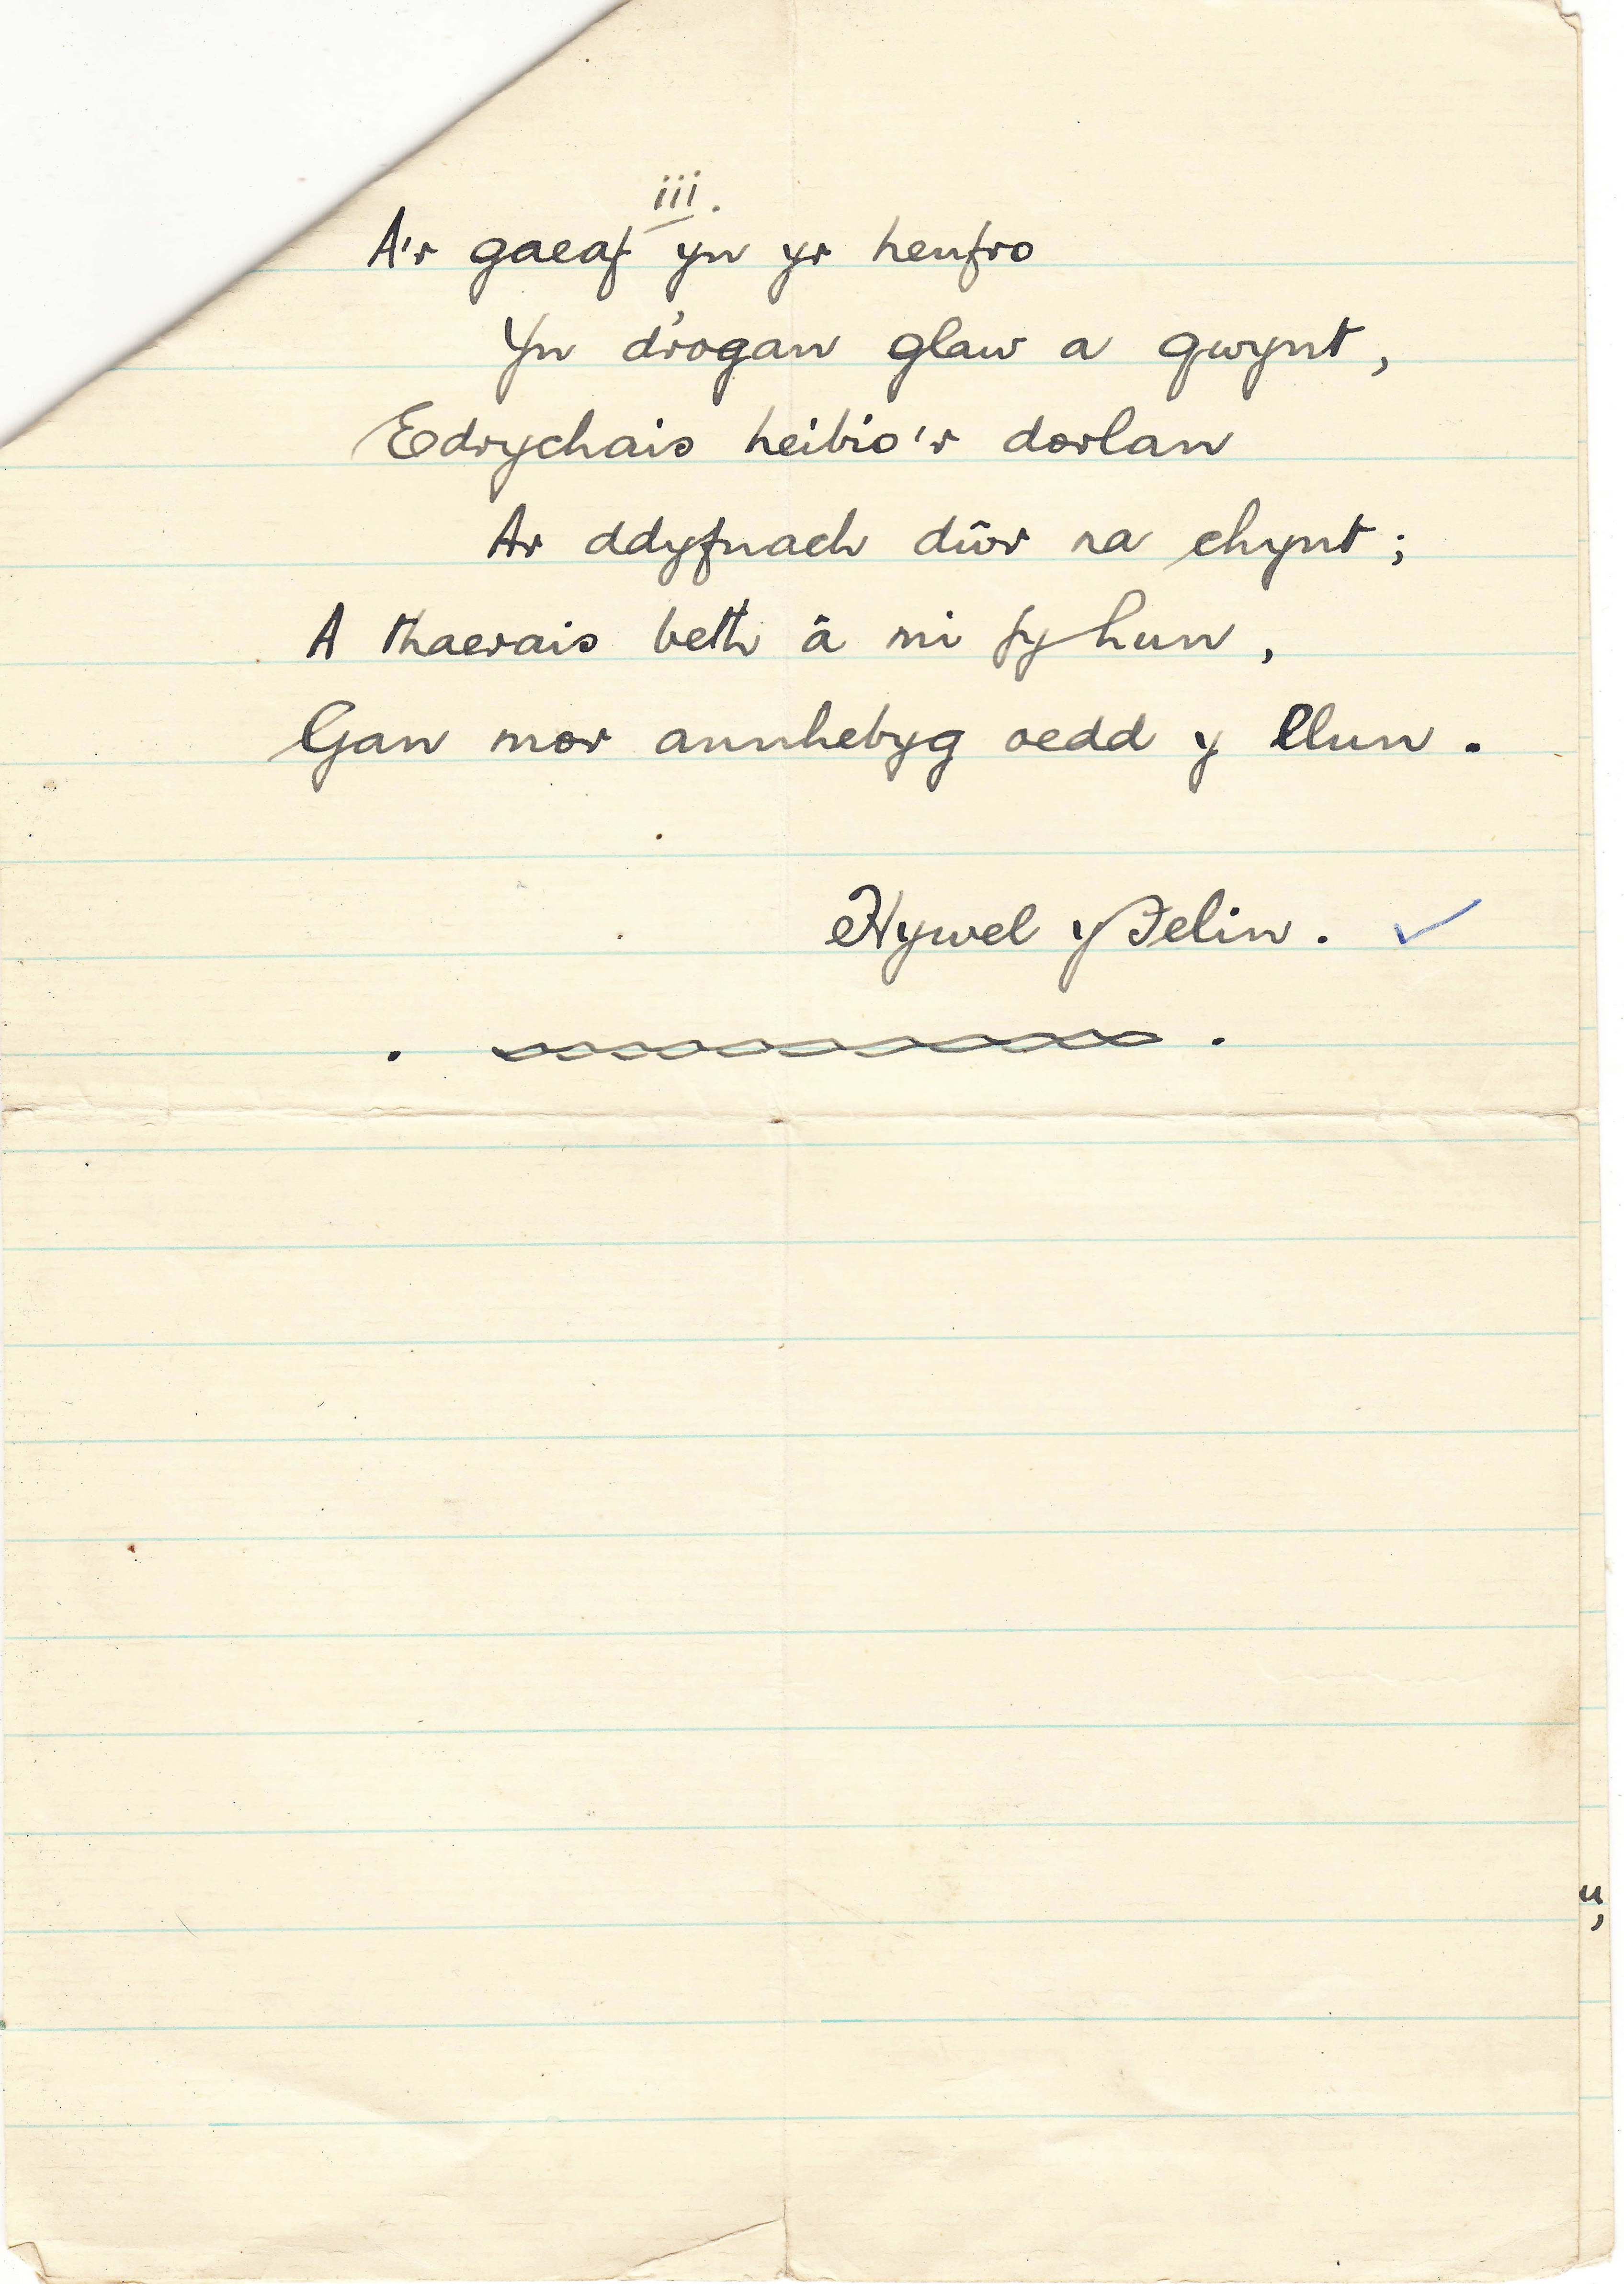 iii.
A'r gaeaf yn yr henfro
Yn d'rogan glaw a gwynt,
Edrychais heibio'r dorlan
Ar ddyfnach dŵr na chynt;
A thaerais beth â mi fy hun,
Gan mor annhebyg oedd y llun.
Hywel y Felin.
u,